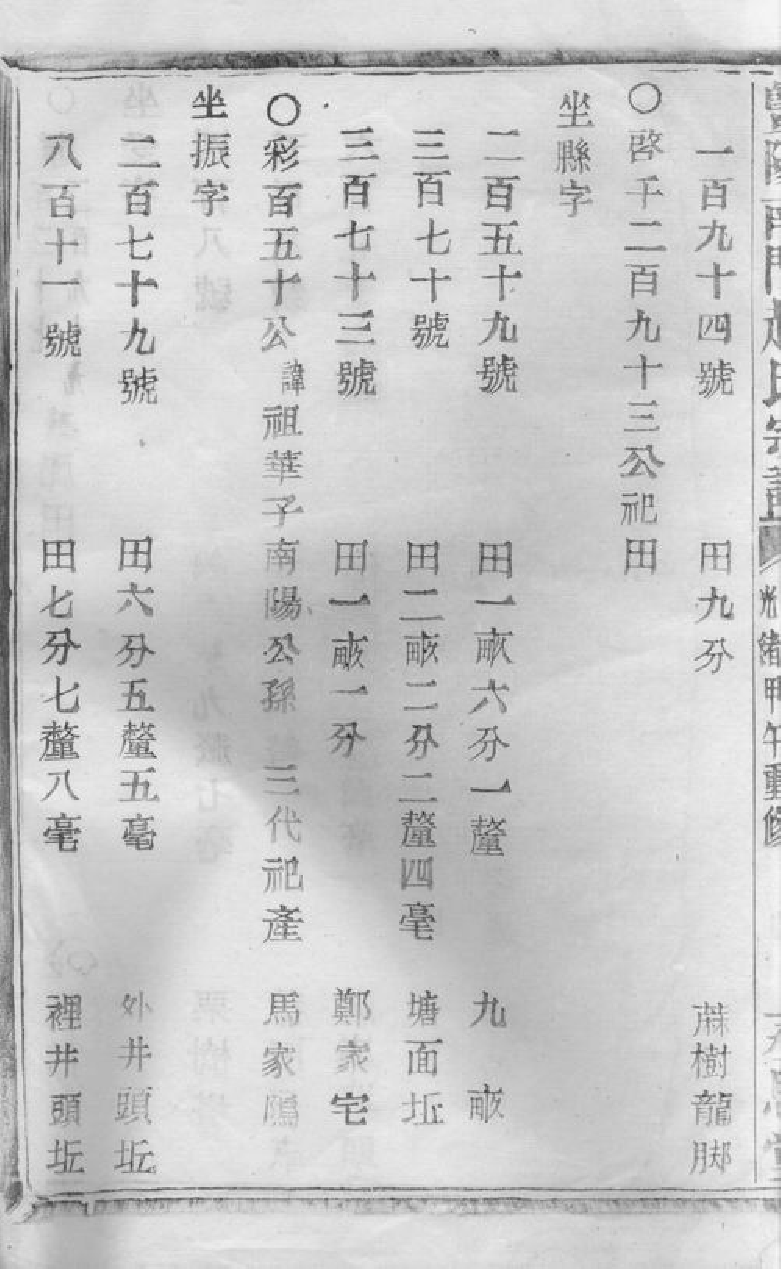 暨陽南門趙氏宗譜 光緒甲午重修
一百九十四號 田九分 蔴樹龍脚
〇啓千二百九十三公祀田
坐縣字
二百五十九號 田一畝六分一釐 九畝
三百七十號 田二畝二分二釐四毫 塘面坵
三百七十三號 田一畝一分 鄭家宅
〇彩百五十公諱祖華子南陽公孫 三代祀產 馬家
坐振字
二百七十九號 田六分五釐五毫 外井頭坵
八百十一號 田七分七釐八毫 裡井頭坵